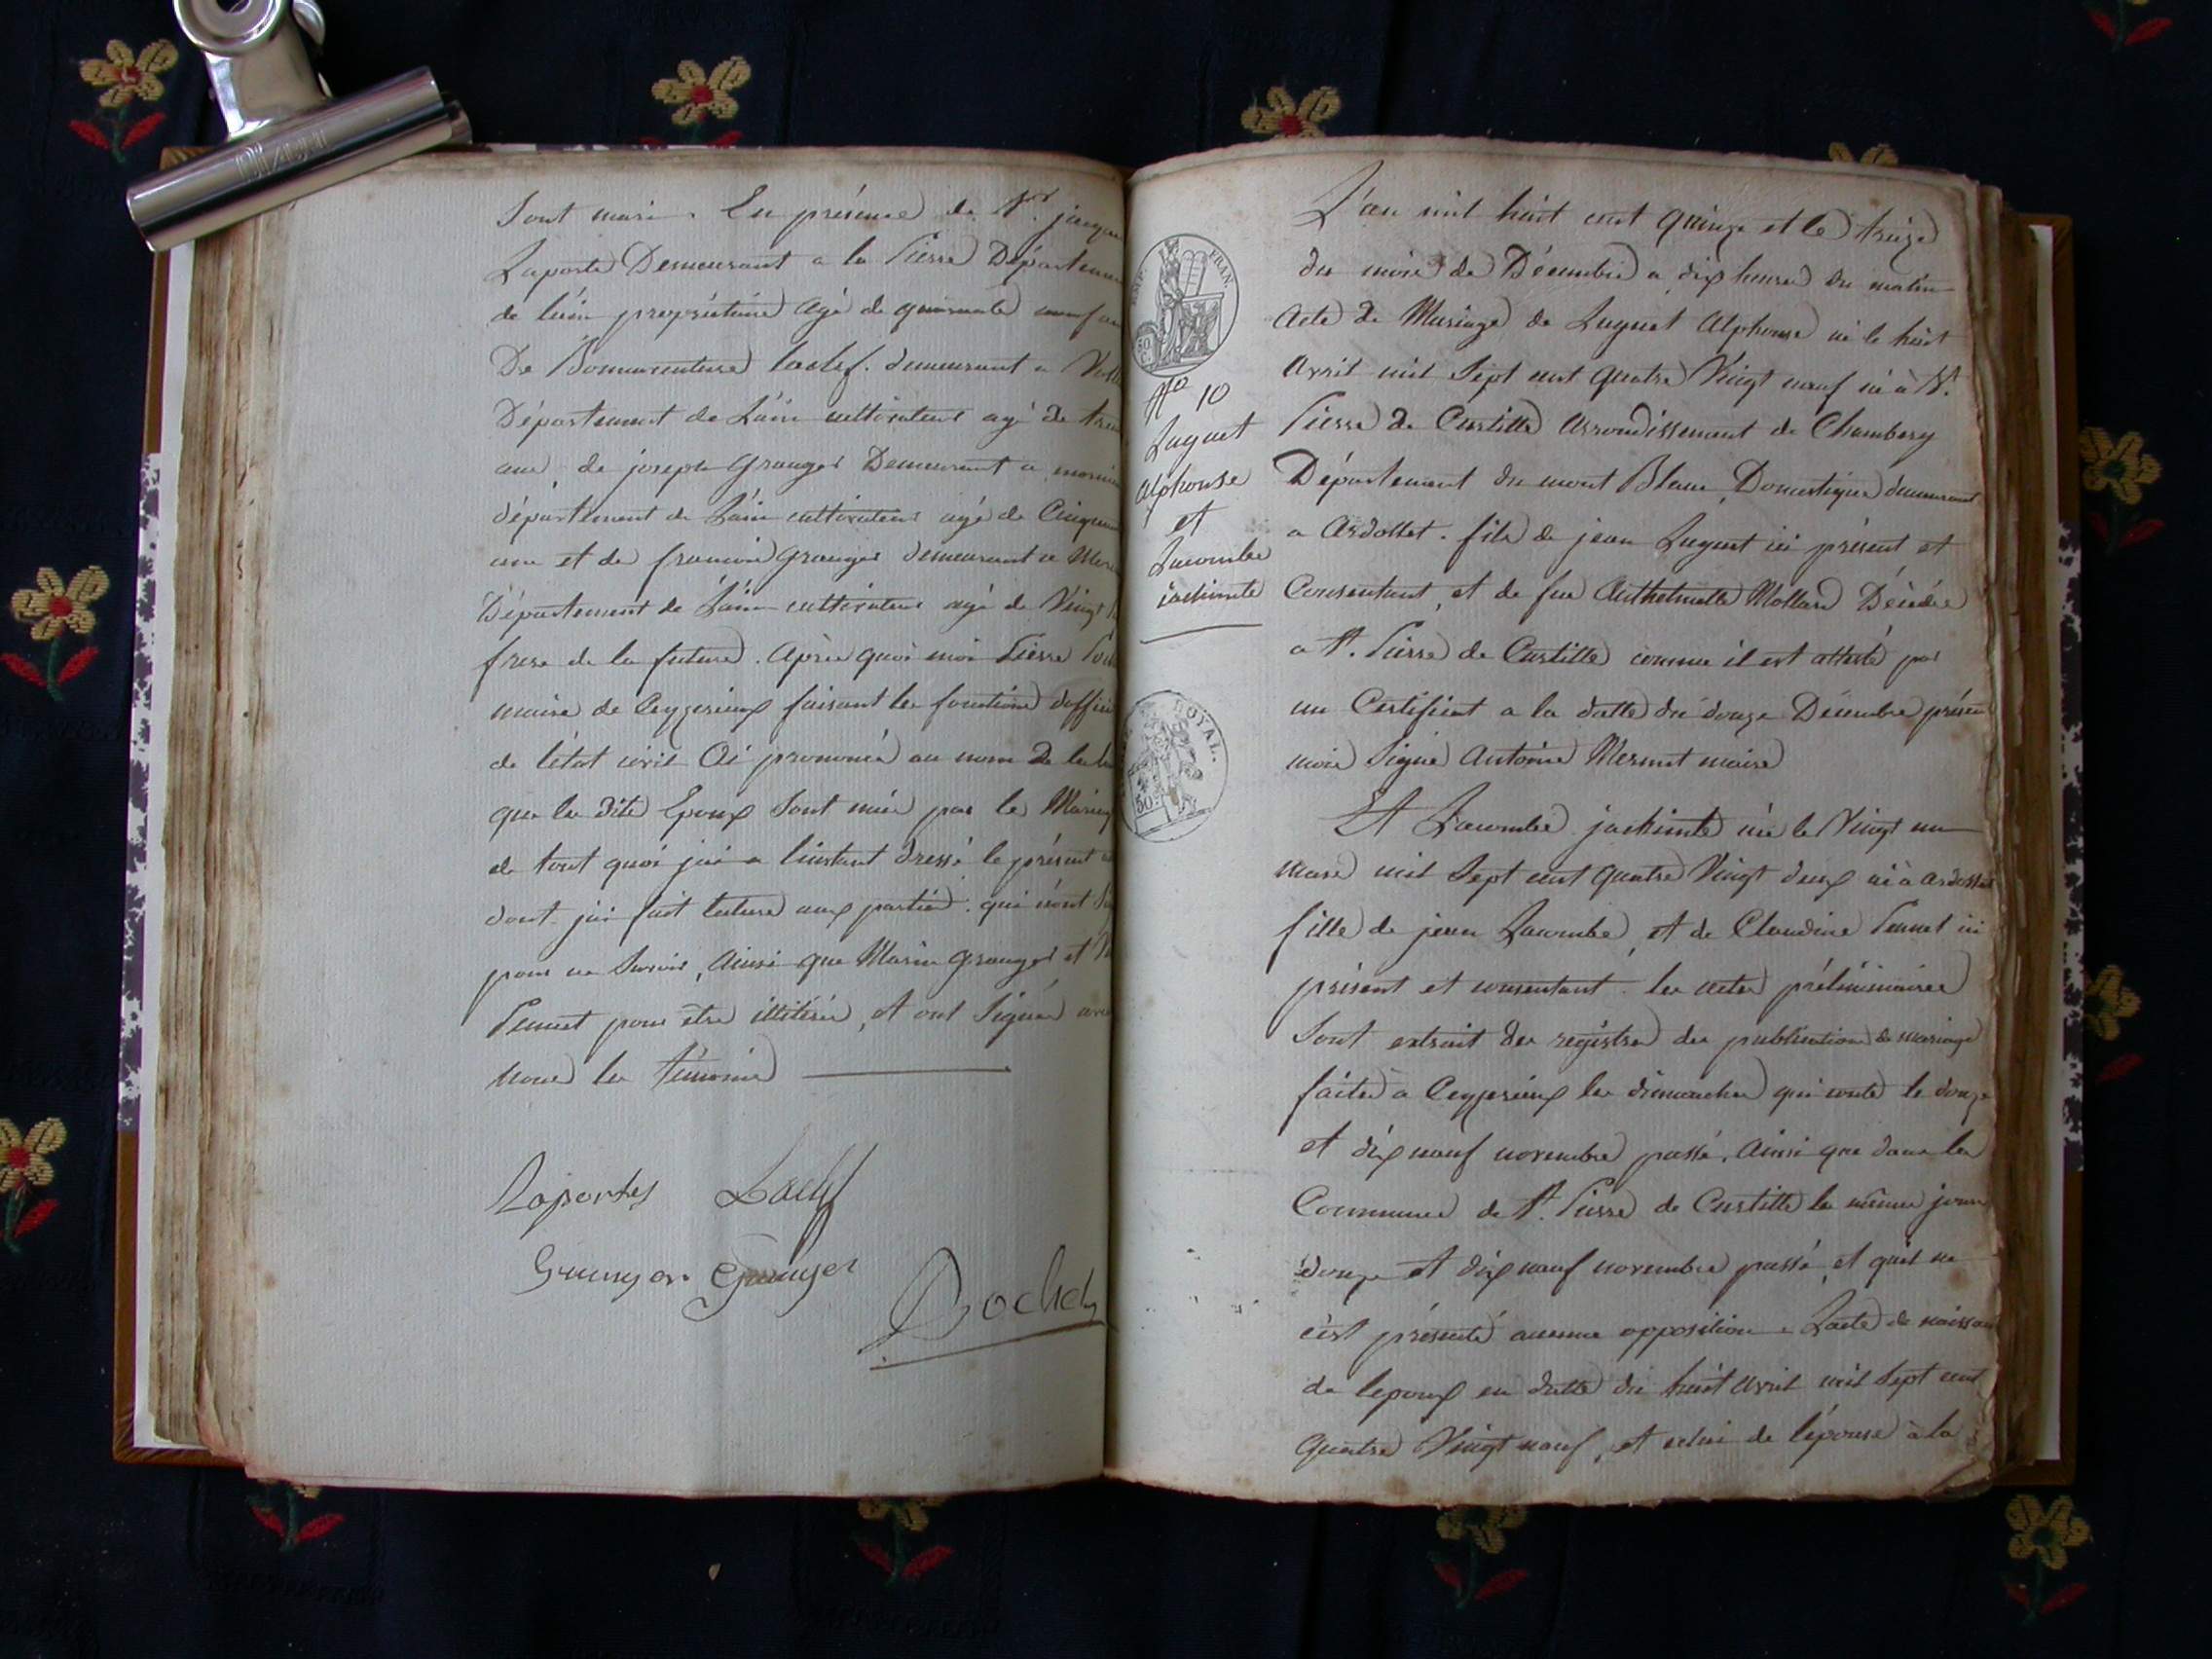 Sont mari. En présence de Sr. jacque
Laporte Demeurant a la Pierre Départeme
de l'ain propriétaire agé de quarante neuf an
De Bonnaventure laclef. demeurant a
Département de L'ain cultivateur agé de tren
ans, de joseph Granger Demeurant a
département de L'ain cultivateur agé de Cinquan
ans et de francois Granger demeurant a
Département de L'ain cultivateur agé de Vingt
frere de la future. Après quoi moi Pierre
maire de Ceyzerieux faisant les fonctions d'offici
de l'état civil Ai prononcé au nom de la
que les dits Epoux Sont unis par le Mariag
de tout quoi jai a linstant dressé le présent
dont jai fait lecture aux parties. qui n'ont
pour ne Savoir, Ainsi que Marie Granger et
Pennet pour etre illitérés, et ont Signés avec
nous les témoins
Laportes Laclef
Granger Granger
Bochet
EMP. FRAN.
50
ROYAL.
50
No 10
Luquet
Alphonse
et
Lacombe
iachinte
L'an mil huit cent quinze et le treize
du mois de Décembre a dix heures du matin
Acte de Mariage de Luquet Alphonse né le huit
Avril mil Sept cent quatre Vingt neuf né à St.
Pierre de Curtille Arrondissement de Chambery
Département du mont Blanc, Domestique demeurant
a Ardosset. fils de jean Luquet ici présent et
Consentant, et de fue Anthelmette Mollard Décédée
a St. Pierre de Curtille comme il est attesté par
un Certificat a la datte du douze Décembre présen
mois Signé Antoine Mermet maire
Et Lacombe jachinte née le Vingt un
mars mil Sept cent quatre Vingt deux né à ardosset
fille de jean Lacombe, et de Claudine Pennet ici
présent et consentant. les actes préliminaires
Sont extrait des registres des publications de mariage
faites a Ceyzerieux les dimanches qui conté le douze
et dix neuf novembre passé, Ainsi que dans la
Commune de St. Pierre de Curtille les même jours
douze et dix neuf novembre passé, et quil ne
c'est présenté aucune opposition. L'acte de naissan
de lepoux en datte du huit Avril mil Sept cent
Quatre Vingt neuf, et celui de l'épouse à la